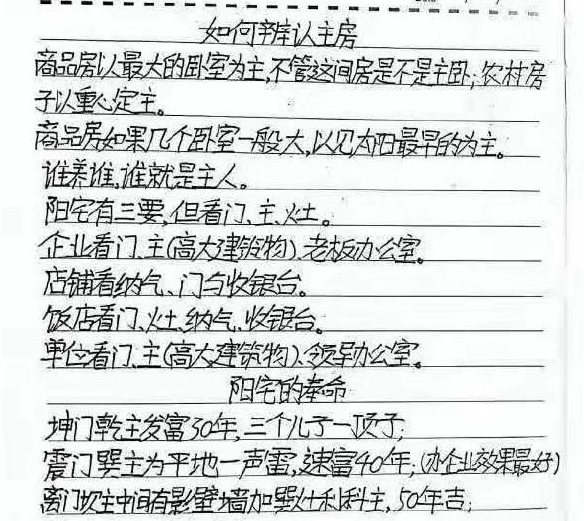 如何辨认主房
商品房以最大的卧室为主,不管这间房是不是主卧;农村房
子以重心定主。
商品房如果几个卧室一般大,以见太阳最早的为主。
谁养谁,谁就是主人。
阳宅有三要,但看门、主、灶。
企业看门、主(高大建筑物)、老板办公室。
店铺看纳气、门与收银台。
饭店看门、灶、纳气、收银台。
单位看门、主(高大建筑物)、领导办公室。
阳宅的奉命
坤门乾主发富30年,三个儿子一顶子;
震门巽主为平地一声雷,速富40年;(办企业效果最好)
离门坎主中间有影壁墙加巽灶利科主,50年吉;